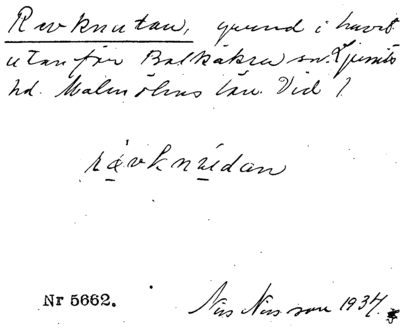 Revknutan, grund i havet
utanför Balkåkra sn. Ljunits
hd. Malmöhus län. Vid 1
rävknúdan
Nr 5662.
Nils Nilsson 1937.